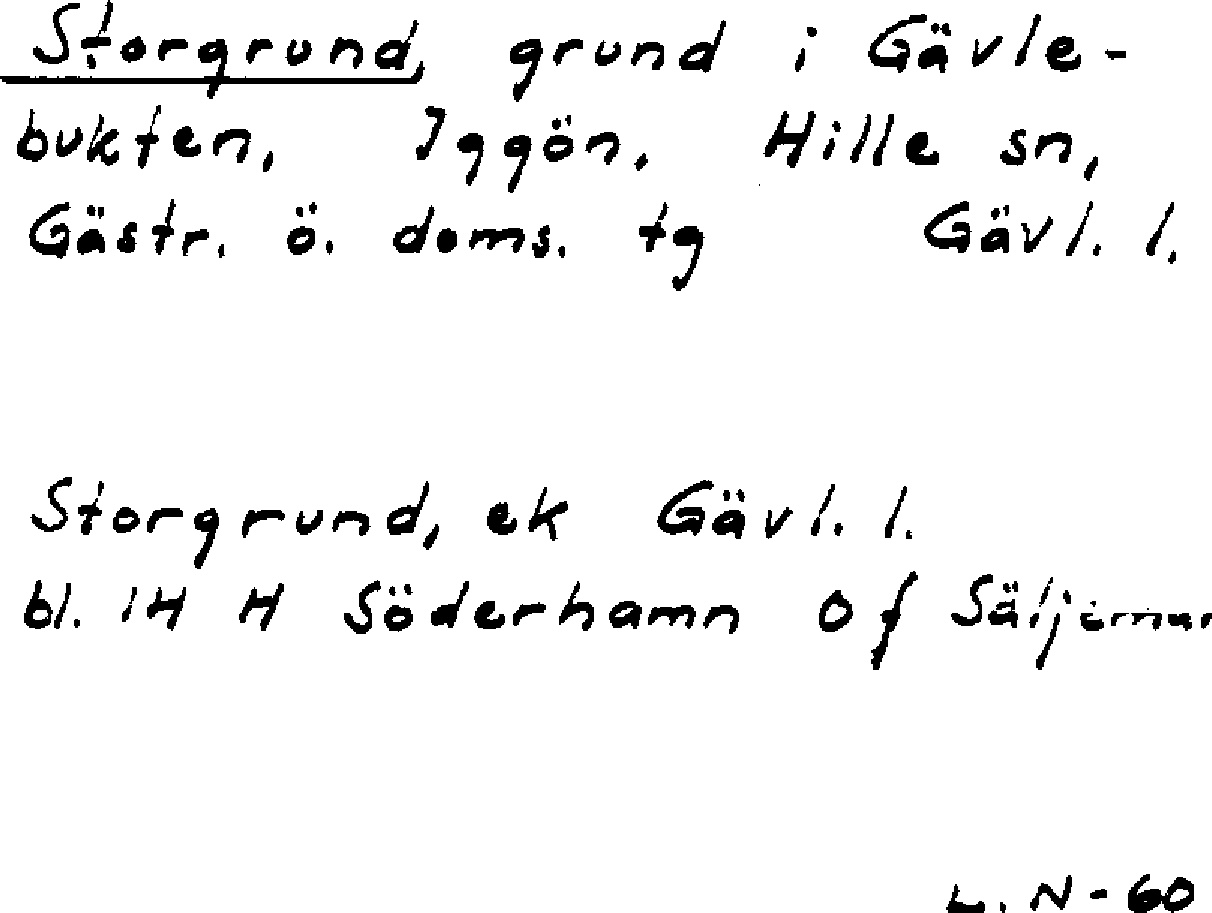 Storgrund, grund i Gävle-
bukten, Iggön, Hille sn,
Gästr. ö. doms. tg Gävl. l.
Storgrund, ek Gävl. l.
bl. 14 H Söderhamn Of
L. N - 60